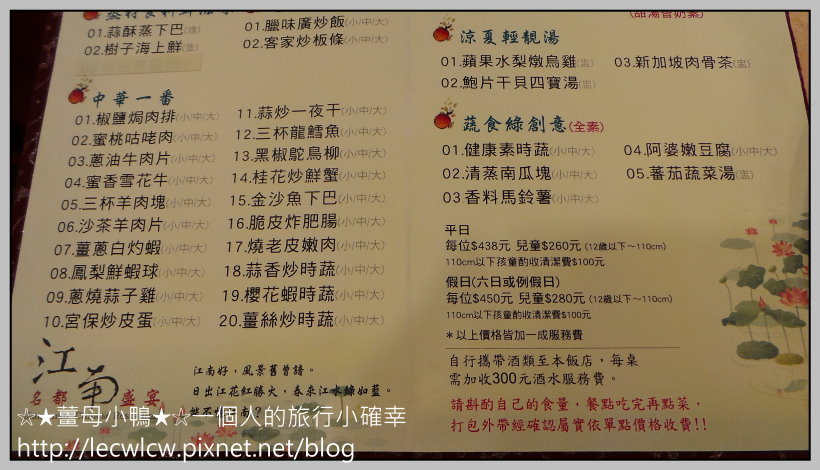 01.蒜酥蒸下巴(塊)
02.樹子海上鮮(隻)
01.臘味廣炒飯(小/中/大)
02.客家炒板條(小/中/大)
中華一番
01.椒鹽焗肉排(小/中/大)
02.蜜桃咕咾肉(小/中/大)
03.蔥油牛肉片(小/中/大)
04.蜜香雪花牛(小/中/大)
05.三杯羊肉塊(小/中/大)
06.沙茶羊肉片(小/中/大)
07.薑蔥白灼蝦(小/中/大)
08.鳳梨鮮蝦球(小/中/大)
09.蔥燒蒜子雞(小/中/大)
10.宮保炒皮蛋(小/中/大)
11.蒜炒一夜干(小/中/大)
12.三杯龍鱈魚(小/中/大)
13.黑椒鴕鳥柳(小/中/大)
14.桂花炒鮮蟹(小/中/大)
15.金沙魚下巴(小/中/大)
16.脆皮炸肥腸(小/中/大)
17.燒老皮嫩肉(小/中/大)
18.蒜香炒時蔬(小/中/大)
19.櫻花蝦時蔬(小/中/大)
20.薑絲炒時蔬(小/中/大)
江南
名都盛宴
江南好,風景舊曾諳。
日出江花紅勝火,春來江水綠如藍。
涼夏輕靚湯
01.蘋果水梨燉烏雞(盅)
02.鮑片干貝四寶湯(盅)
03.新加坡肉骨茶(盅)
蔬食綠創意(全素)
01.健康素時蔬(小/中/大)
02.清蒸南瓜塊(小/中/大)
03.香料馬鈴薯(小/中/大)
04.阿婆嫩豆腐(小/中/大)
05.蕃茄蔬菜湯(盅)
平日
每位$438元 兒童$260元 (12歲以下~110cm)
110cm以下孩童酌收清潔費$100元
假日(六日或例假日)
每位$450元 兒童$280元 (12歲以下~110cm)
110cm以下孩童酌收清潔費$100元
*以上價格皆加一成服務費
自行攜帶酒類至本飯店,每桌
需加收300元酒水服務費。
請斟酌自己的食量,餐點吃完再點菜,
打包外帶經確認屬實依單點價格收費!!
☆★薑母小鴨★☆ 一個人的旅行小確幸
http://lecwlcw.pixnet.net/blog